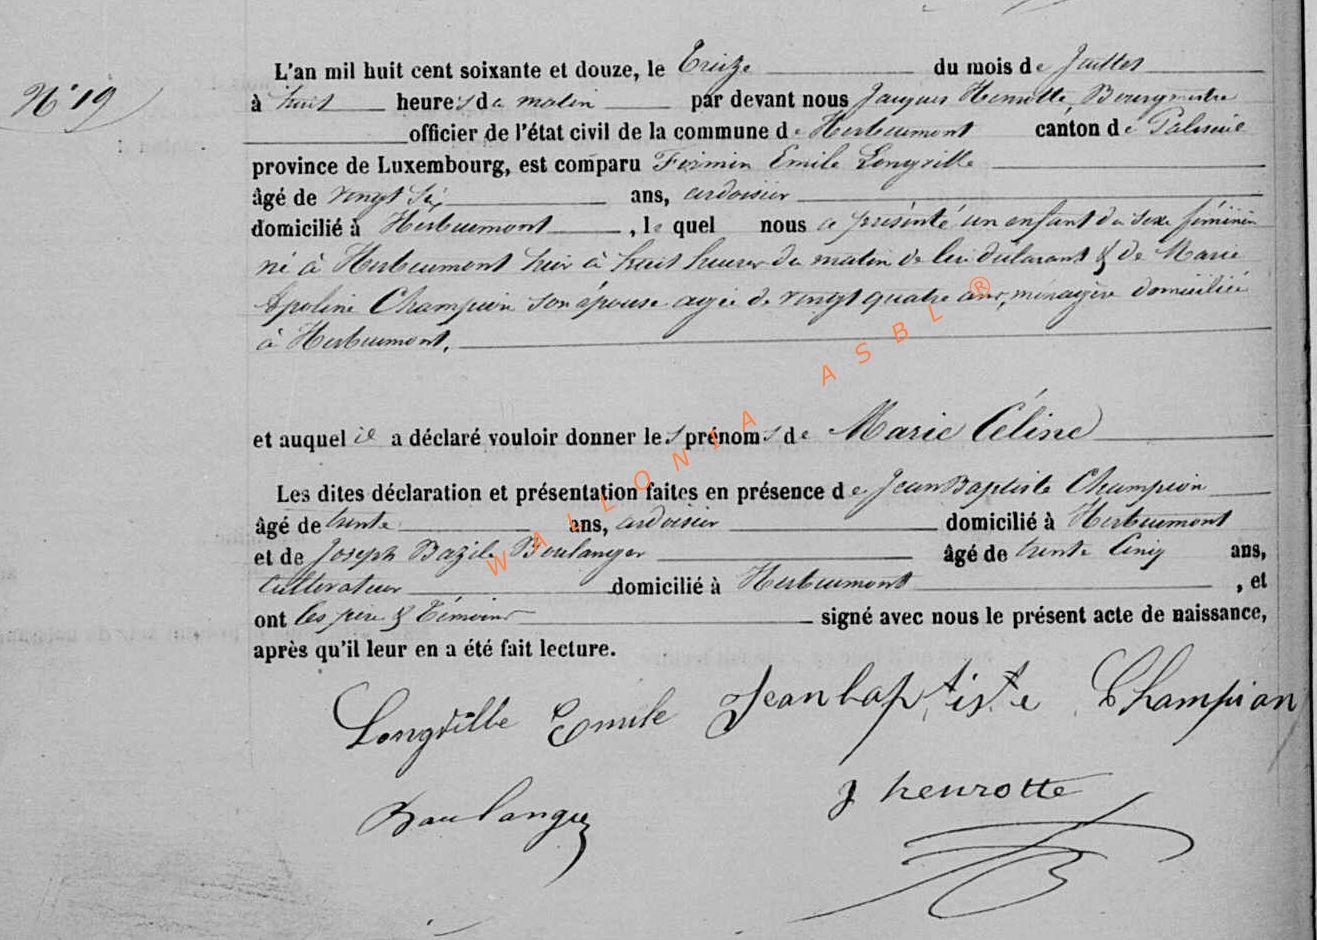 N° 19
L'an mil huit cent soixante et douze, le Treize du mois de Juillet
à huit heures du matin par devant nous Jacques Henrotte, Bourgmestre
officier de l'état civil de la commune de Herbeumont canton de Paliseul
province de Luxembourg, est comparu Firmin Emile Longville
âgé de vingt six ans, ardoisier
domicilié à Herbeumont, le quel nous a présenté un enfant du sexe féminin
né à Herbeumont hier à huit heures du matin de lui déclarant & de Marie
Apoline Champion son épouse agée de vingt quatre ans, ménagère domiciliée
à Herbeumont.
et auquel il a déclaré vouloir donner les prénoms de Marie Céline
Les dites déclaration et présentation faites en présence de Jean Baptiste Champion
âgé de trente ans, ardoisier domicilié à Herbeumont
et de Joseph Bazile Boulanger âgé de trente Cinq ans,
Cultivateur domicilié à Herbeumont, et
ont les père & Témoins signé avec nous le présent acte de naissance,
après qu'il leur en a été fait lecture.
Longville Emile Jean baptiste Champion
Boulanger J henrotte
WALLONIA ASBL ®